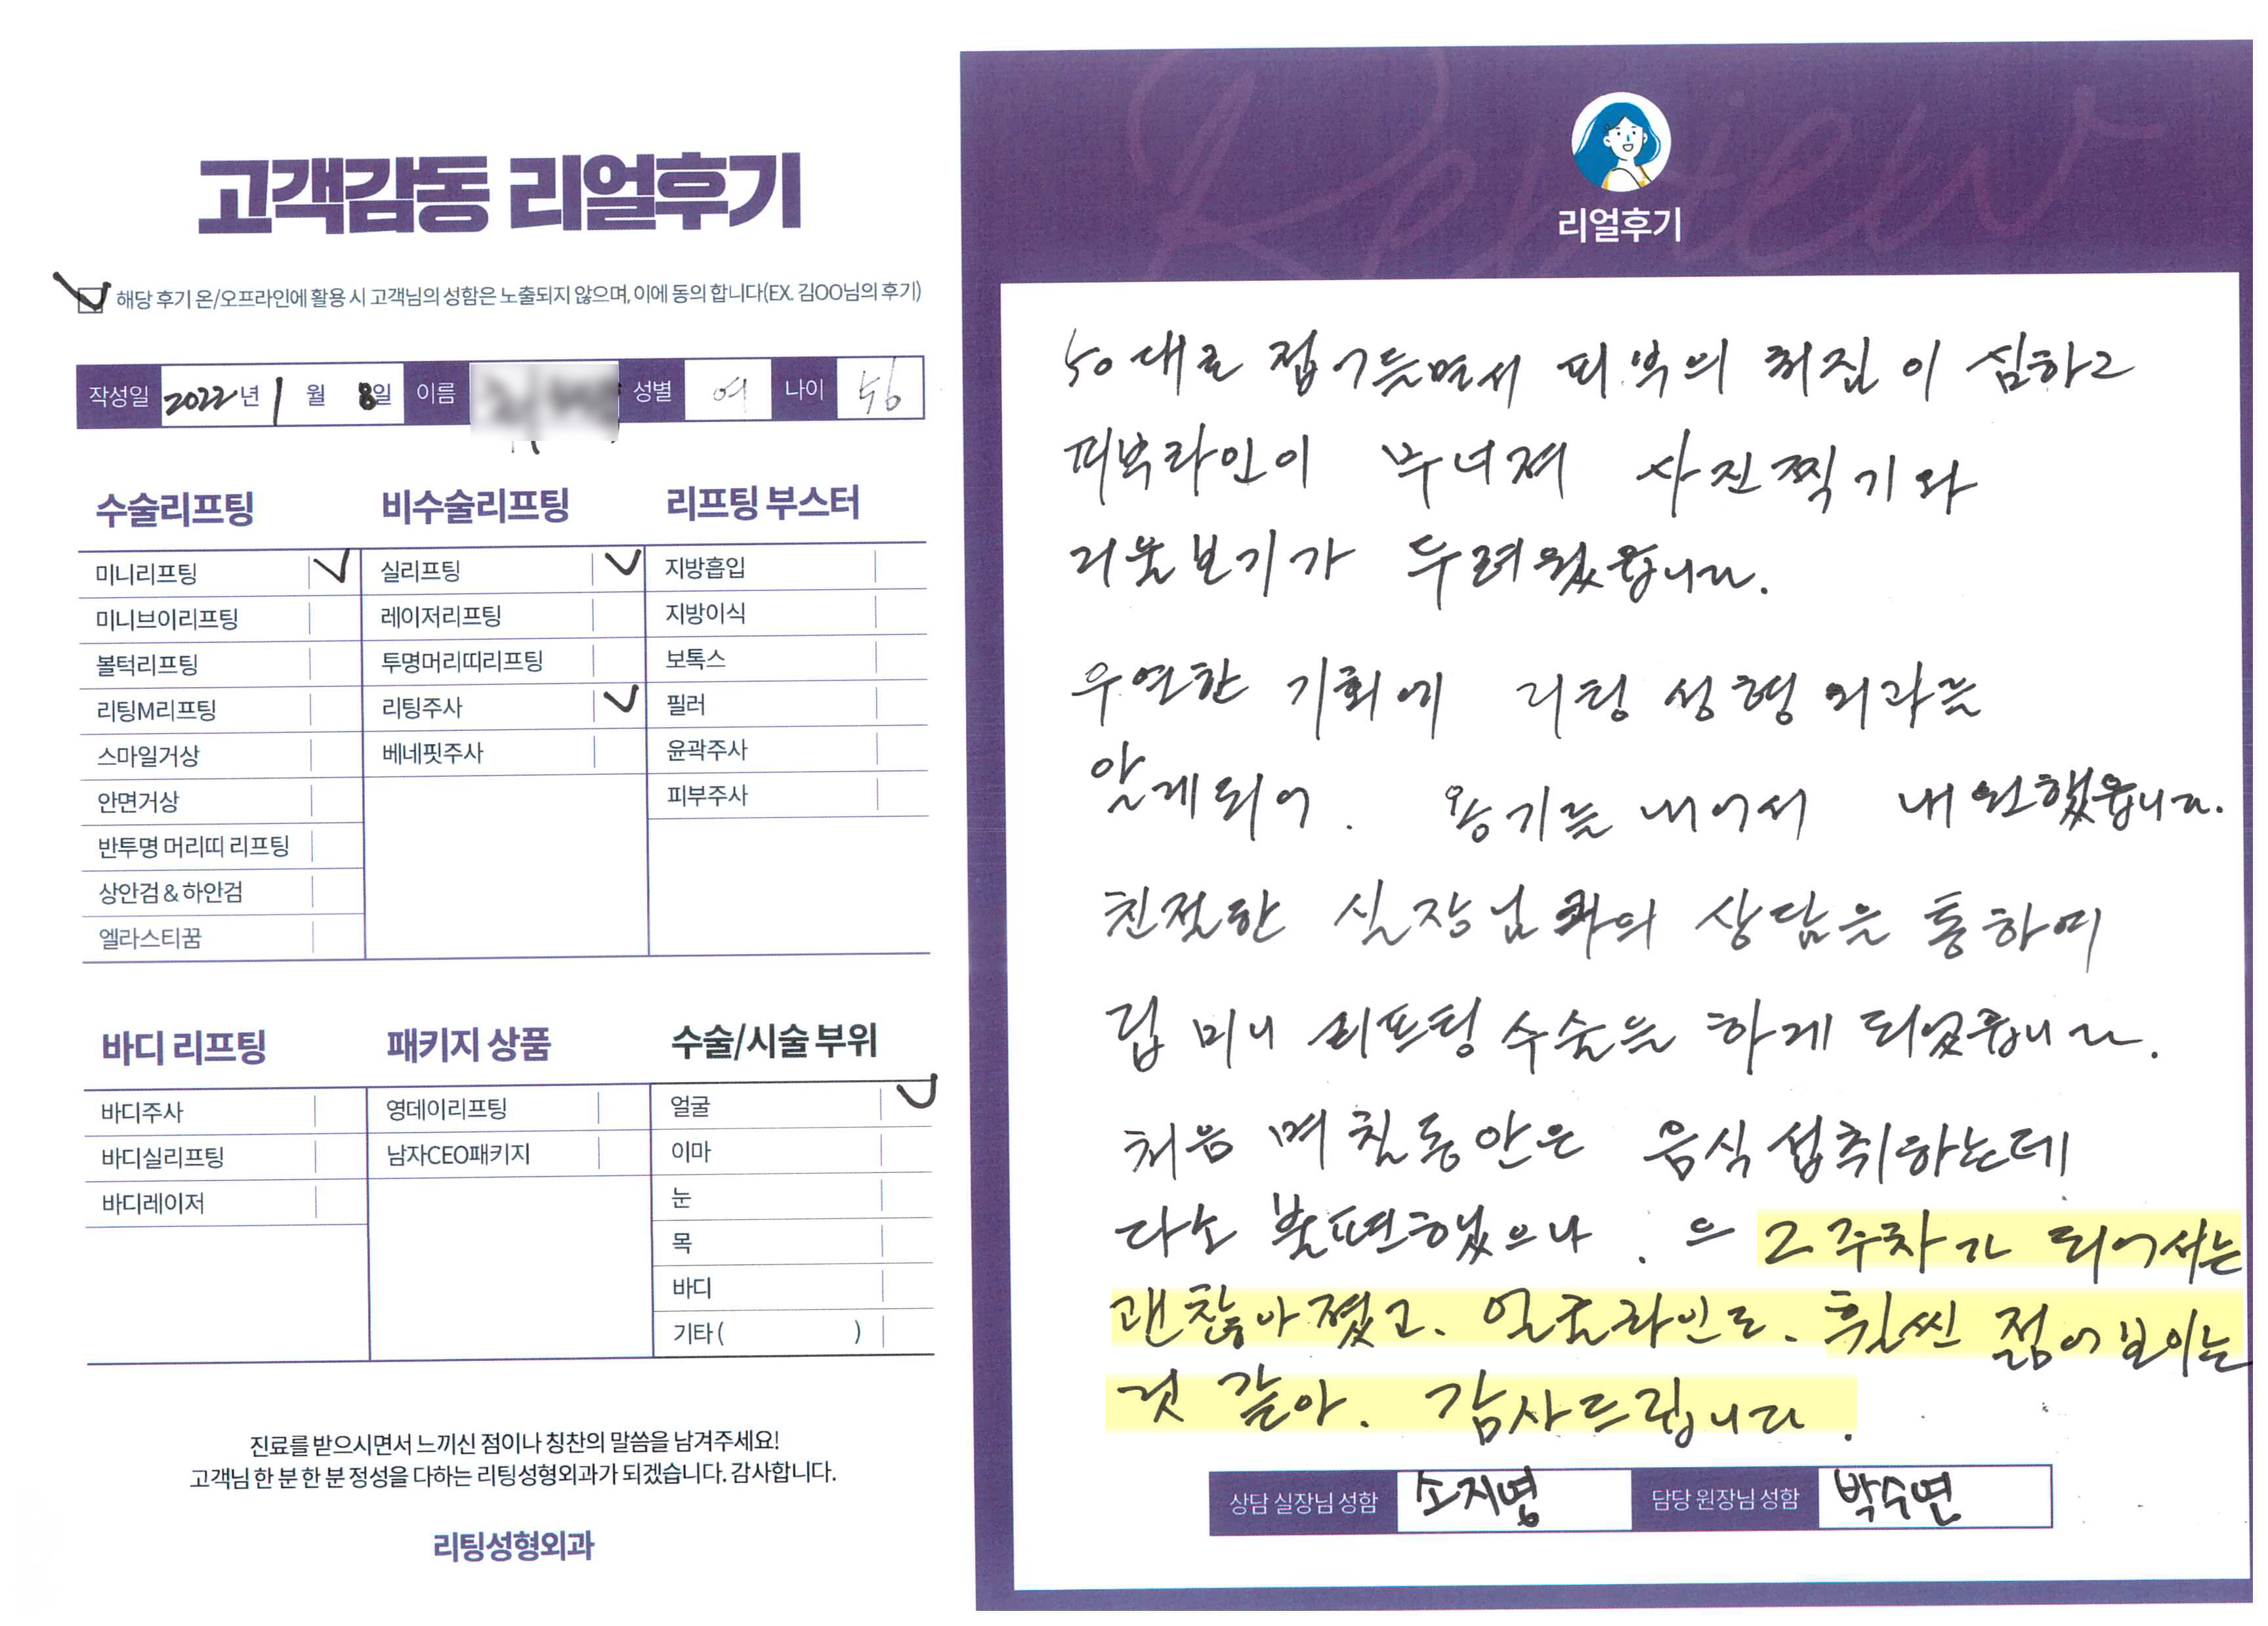 고객감동 리얼후기
해당 후기 온/오프라인에 활용 시 고객님의 성함은 노출되지 않으며, 이에 동의 합니다(EX. 김OO님의 후기)
작성일 2022년 1월 8일 이름 성별 여 나이 56
수술리프팅
미니리프팅
미니브이리프팅
볼턱리프팅
리팅M리프팅
스마일거상
안면거상
반투명 머리띠 리프팅
상안검 & 하안검
엘라스티꿈
비수술리프팅
실리프팅
레이저리프팅
투명머리띠리프팅
리팅주사
베네핏주사
리프팅 부스터
지방흡입
지방이식
보톡스
필러
윤곽주사
피부주사
바디 리프팅
바디주사
바디실리프팅
바디레이저
패키지 상품
영데이리프팅
남자CEO패키지
수술/시술 부위
얼굴
이마
눈
목
바디
기타 ( )
진료를 받으시면서 느끼신 점이나 칭찬의 말씀을 남겨주세요!
고객님 한 분 한 분 정성을 다하는 리팅성형외과가 되겠습니다. 감사합니다.
리팅성형외과
Review
리얼후기
50대로 접어들면서 피부의 처짐이 심하고
피부라인이 무너져 사진찍기와
거울보기가 두려웠읍니다.
우연한 기회에 리팅 성형외과를
알게되어. 용기를 내어서 내원했읍니다.
친절한 실장님과의 상담을 통하여
립 미니 리프팅 수술을 하게 되었읍니다.
처음 며칠동안은 음식섭취하는데
다소 불편했으나. 으 2주차가 되어서는
괜찮아졌고. 얼굴라인도. 훨씬 젊어보이는
것 같아. 감사드립니다.
상담 실장님 성함 소지영 담당 원장님 성함 박수연